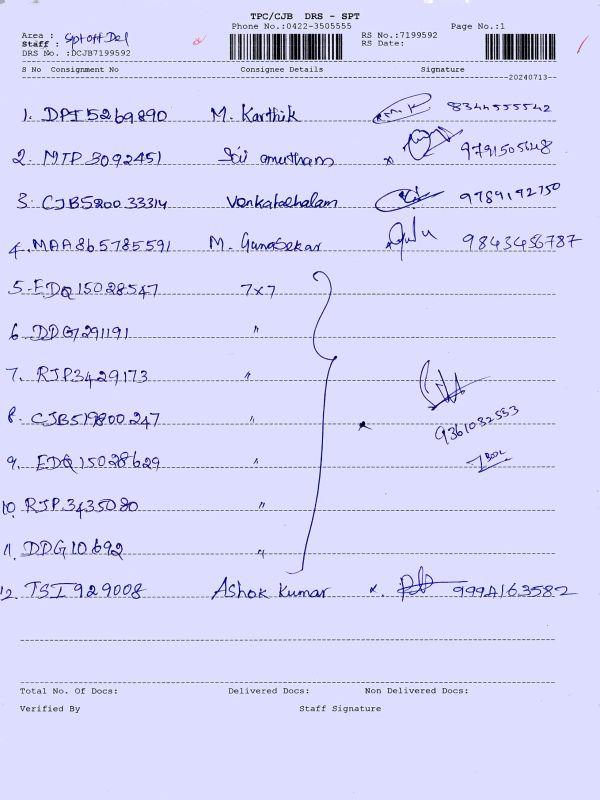 TPC/CJB DRS - SPT
Phone No.:0422-3505555 Page No.:1
Area : Spt off Del RS No.:7199592
Staff : RS Date:
DRS No. :DCJB7199592
S No Consignment No Consignee Details Signature
20240713--
1. DPI5269890 M. Karthik M.K 8344555542
2. MTP3092451 Sai amutham x 9791505648
3. CJB5200 33314 Venkatachalam 9789192750
4. MAA865785591 M. Gunasekar 9843456787
5. EDQ15028547 7x7
6. DDG7291191 "
7. RJP3429173 "
8. CJB519800247 "
9361032533
9. EDQ15028629 "
10. RJP3435080 "
11. DDG10692 "
12. TSI929008 Ashok Kumar x. 9994163582
Total No. Of Docs: Delivered Docs: Non Delivered Docs:
Verified By Staff Signature